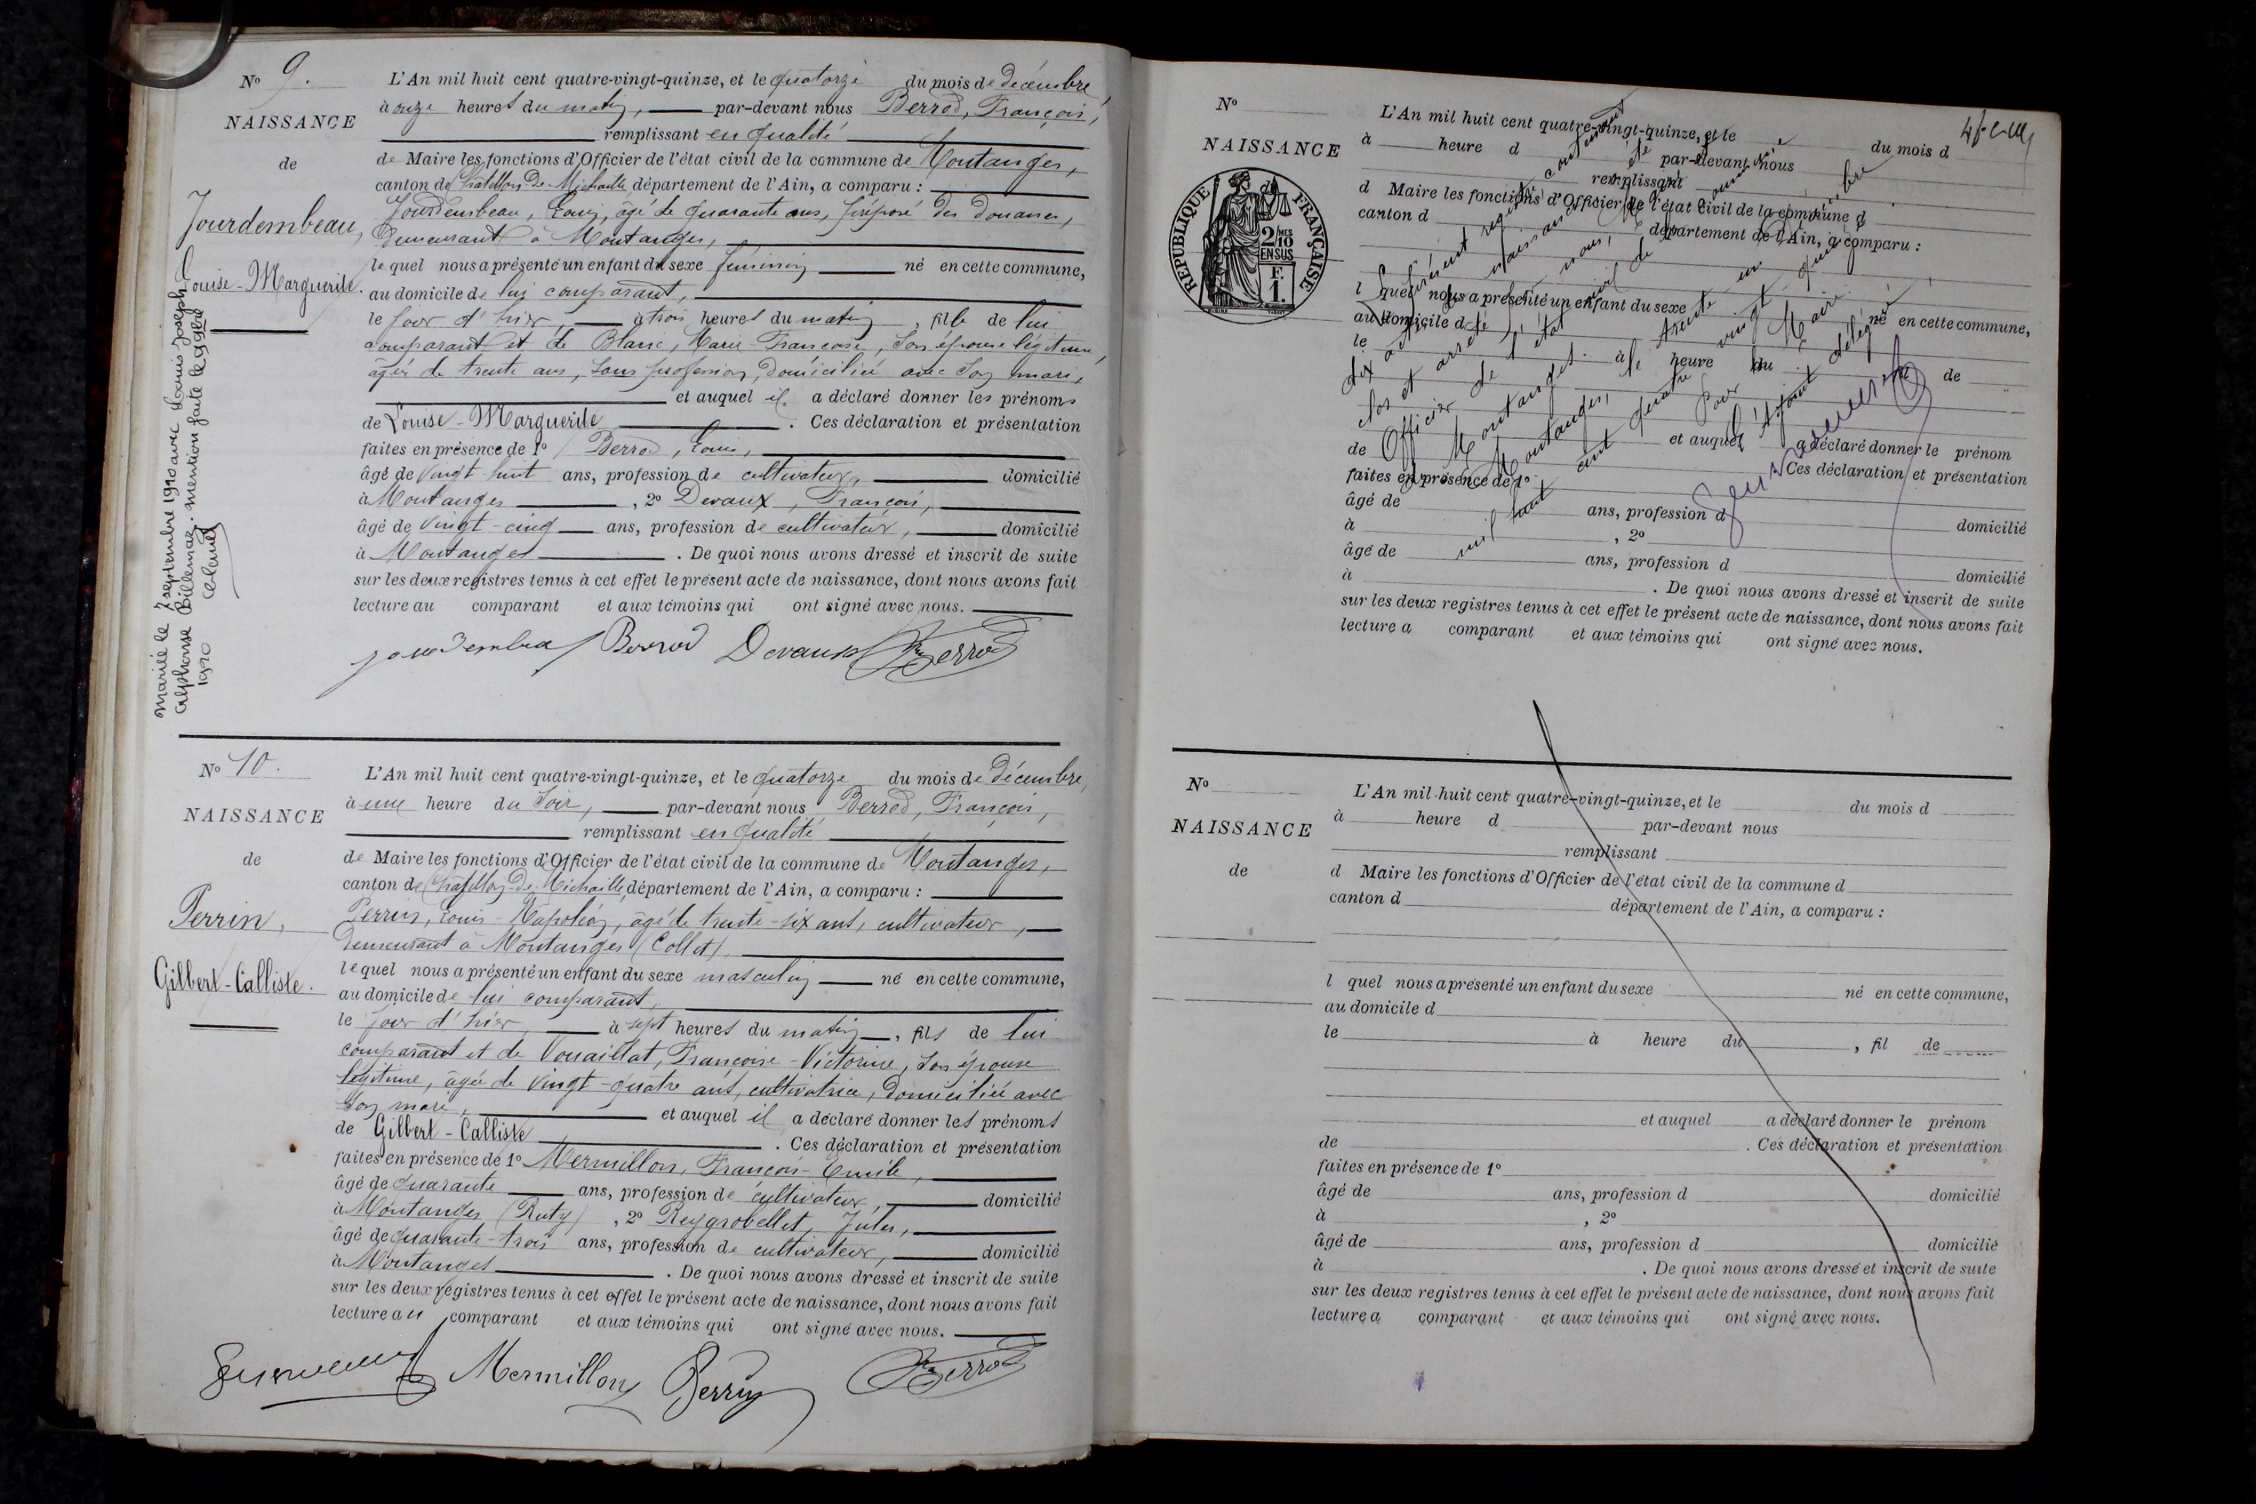 N° 9.
NAISSANCE
de
Jourdembeau,
Louise-Marguerite.
mariée le 7 septembre 1920 avec Louis Joseph
Alphonse Billemaz. mention faite le
1920
L'An mil huit cent quatre-vingt-quinze, et le quatorze du mois de décembre,
à onze heures du matin, par-devant nous Berrod, François,
remplissant en qualité
de Maire les fonctions d'Officier de l'état civil de la commune de Montanges,
canton de Châtillon-de-Michaille, département de l'Ain, a comparu :
Jourdembeau, Louis, âgé de quarante ans, préposé des douanes,
demeurant à Montanges,
le quel nous a présenté un enfant du sexe féminin né en cette commune,
au domicile de lui comparant,
le jour d'hier, à trois heures du matin, fille de lui
comparant et de Blanc, Marie-Françoise, son épouse légitime,
âgée de trente ans, sans profession, domiciliée avec son mari,
et auquel il a déclaré donner les prénoms
de Louise-Marguerite. Ces déclaration et présentation
faites en présence de 1° Berrod, Louis,
âgé de vingt-huit ans, profession de cultivateur, domicilié
à Montanges, 2° Devaux, François,
âgé de vingt-cinq ans, profession de cultivateur, domicilié
à Montanges. De quoi nous avons dressé et inscrit de suite
sur les deux registres tenus à cet effet le présent acte de naissance, dont nous avons fait
lecture au comparant et aux témoins qui ont signé avec nous.
Jourdembeau Berrod Devaux Berrod
N° 10.
NAISSANCE
de
Perrin,
Gilbert-Calliste.
L'An mil huit cent quatre-vingt-quinze, et le quatorze du mois de décembre,
à une heure du soir, par-devant nous Berrod, François,
remplissant en qualité
de Maire les fonctions d'Officier de l'état civil de la commune de Montanges,
canton de Châtillon-de-Michaille, département de l'Ain, a comparu :
Perrin, Louis-Napoléon, âgé de trente-six ans, cultivateur,
demeurant à Montanges (Collet),
le quel nous a présenté un enfant du sexe masculin né en cette commune,
au domicile de lui comparant,
le jour d'hier, à sept heures du matin, fils de lui
comparant et de Vouaillat, Françoise-Victorine, son épouse
légitime, âgée de vingt-quatre ans, cultivatrice, domiciliée avec
son mari, et auquel il a déclaré donner les prénoms
de Gilbert-Calliste. Ces déclaration et présentation
faites en présence de 1° Mermillon, François-Emile,
âgé de quarante ans, profession de cultivateur, domicilié
à Montanges (Ruty), 2° Reygrobellet, Jules,
âgé de quarante-trois ans, profession de cultivateur, domicilié
à Montanges. De quoi nous avons dressé et inscrit de suite
sur les deux registres tenus à cet effet le présent acte de naissance, dont nous avons fait
lecture au comparant et aux témoins qui ont signé avec nous.
Mermillon Perrin Berrod
N°
NAISSANCE
RÉPUBLIQUE FRANÇAISE
2/10 MES
EN SUS
F.
1.
L'An mil huit cent quatre-vingt-quinze, et le du mois d
à heure d par-devant nous
remplissant
d Maire les fonctions d'Officier de l'état civil de la commune d
canton d département de l'Ain, a comparu :
l quel nous a présenté un enfant du sexe né en cette commune,
au domicile d
le à heure du de
et auquel a déclaré donner le prénom
de Ces déclaration et présentation
faites en présence de 1°
âgé de ans, profession d domicilié
à , 2°
âgé de ans, profession d domicilié
à . De quoi nous avons dressé et inscrit de suite
sur les deux registres tenus à cet effet le présent acte de naissance, dont nous avons fait
lecture a comparant et aux témoins qui ont signé avec nous.
Le présent registre contenant
dix actes de naissance a été
clos et arrêté par nous, Maire
Officier de l'état civil de la commune de
Montanges, le trente un décembre
mil huit cent quatre vingt quinze
Pour le Maire
l'Adjoint délégué,
N°
NAISSANCE
de
L'An mil huit cent quatre-vingt-quinze, et le du mois d
à heure d par-devant nous
remplissant
d Maire les fonctions d'Officier de l'état civil de la commune d
canton d département de l'Ain, a comparu :
l quel nous a présenté un enfant du sexe né en cette commune,
au domicile d
le à heure du , fil de
et auquel a déclaré donner le prénom
de . Ces déclaration et présentation
faites en présence de 1°
âgé de ans, profession d domicilié
à , 2°
âgé de ans, profession d domicilié
à . De quoi nous avons dressé et inscrit de suite
sur les deux registres tenus à cet effet le présent acte de naissance, dont nous avons fait
lecture a comparant et aux témoins qui ont signé avec nous.